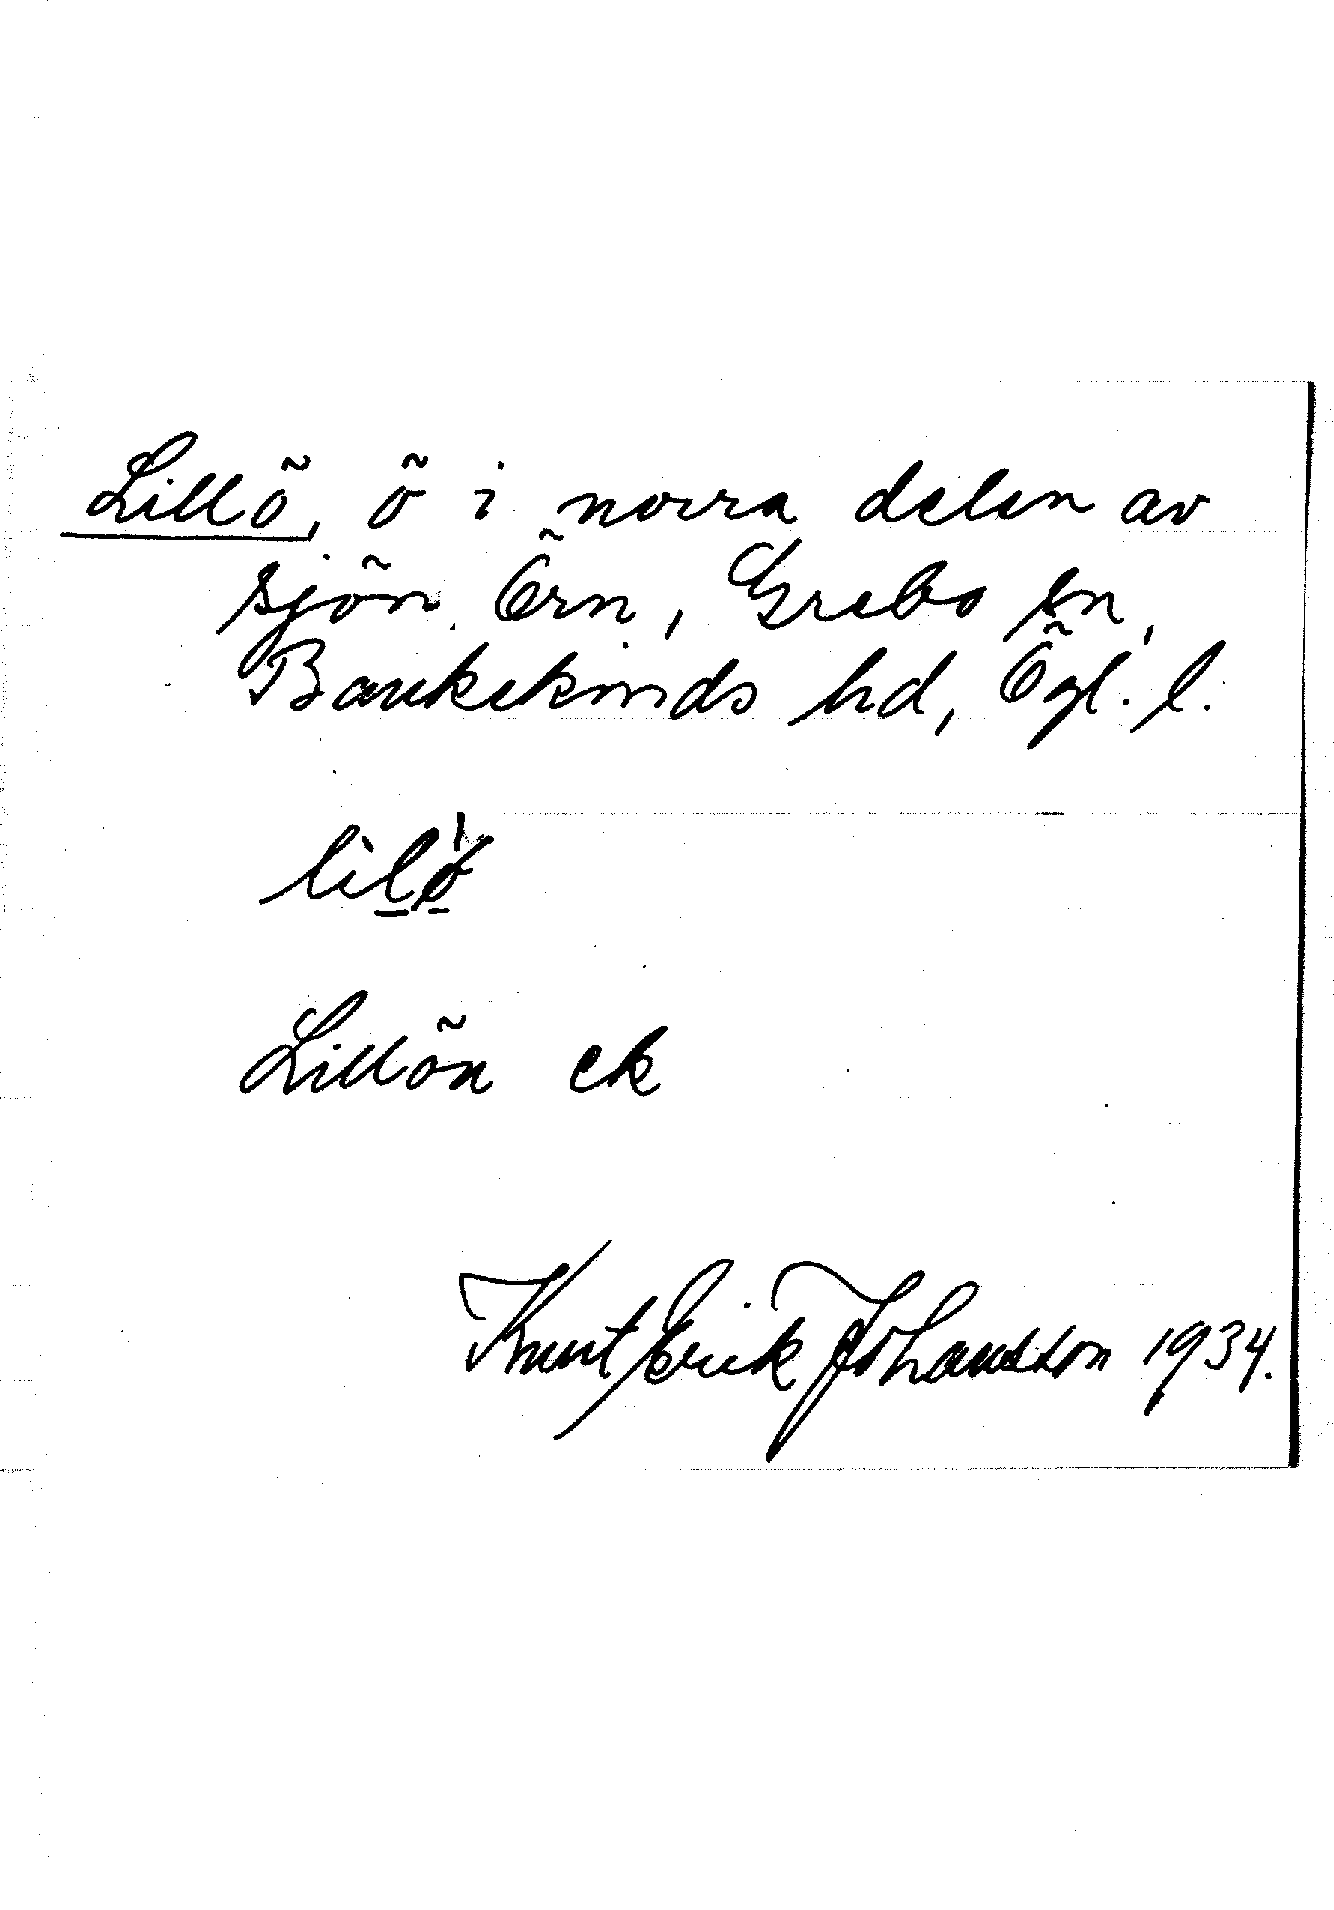 Lillö, ö i norra delen av
sjön Örn, Grebo sn,
Bankekinds hd, Ögl. l.
lìlǿ
Lillön ek
Knut Erik Johansson 1934.